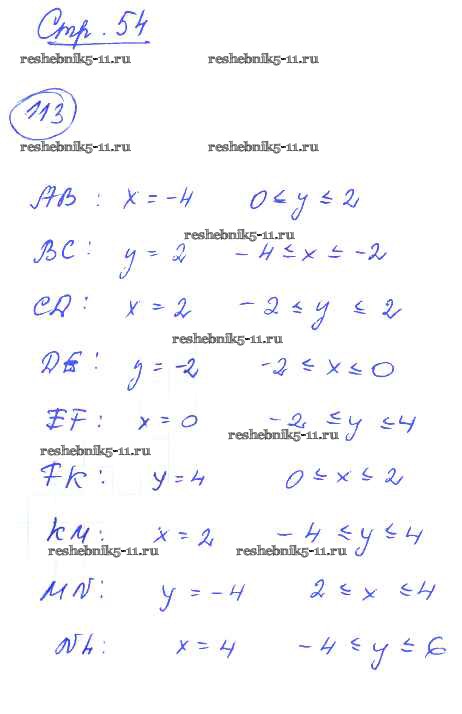 Стр. 54
reshebnik5-11.ru reshebnik5-11.ru
113
reshebnik5-11.ru reshebnik5-11.ru
AB : x = -4 0 ≤ y ≤ 2
reshebnik5-11.ru
BC : y = 2 -4 ≤ x ≤ -2
CD : x = 2 -2 ≤ y ≤ 2
reshebnik5-11.ru
DE : y = -2 -2 ≤ x ≤ 0
EF : x = 0 -2 ≤ y ≤ 4
reshebnik5-11.ru
reshebnik5-11.ru
FK : y = 4 0 ≤ x ≤ 2
KM : x = 2 -4 ≤ y ≤ 4
reshebnik5-11.ru reshebnik5-11.ru
MN : y = -4 2 ≤ x ≤ 4
NL : x = 4 -4 ≤ y ≤ 6